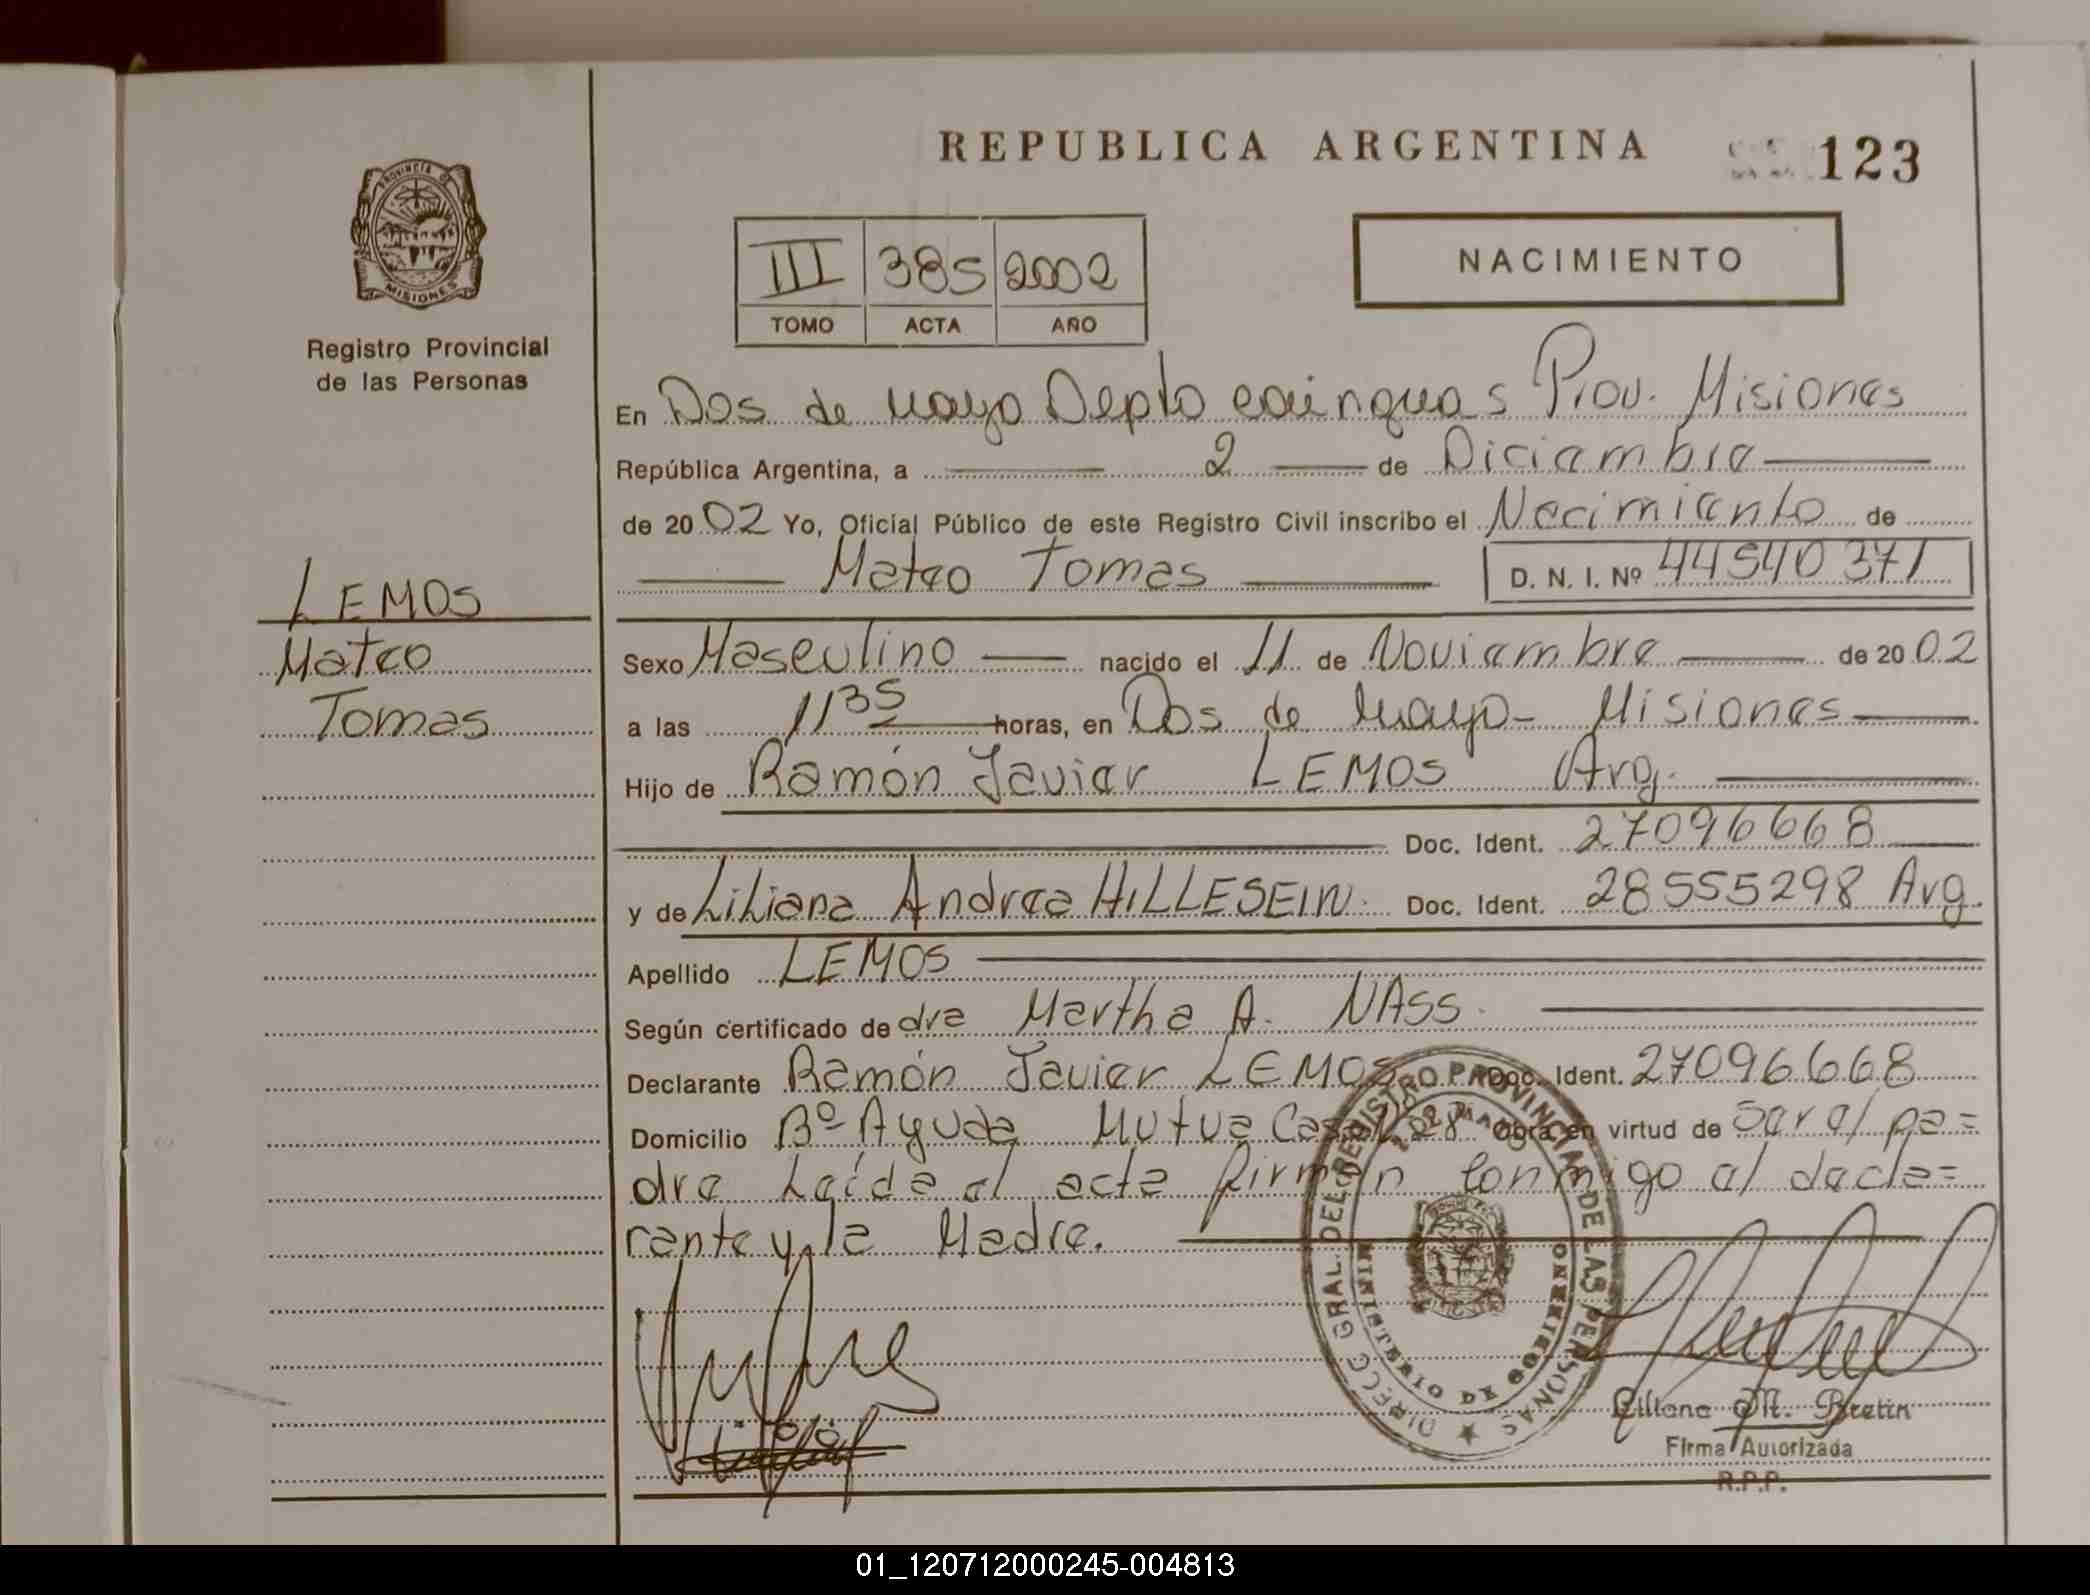 REPUBLICA ARGENTINA
123
PROVINCIA DE
MISIONES
Registro Provincial
de las Personas
III 385 2002
TOMO ACTA AÑO
NACIMIENTO
En Dos de Mayo Depto Cainguas Prov. Misiones
República Argentina, a 2 de Diciembre
de 2002 Yo, Oficial Público de este Registro Civil inscribo el Nacimiento de
Mateo Tomas D. N. I. Nº 44540371
LEMOS
Mateo
Tomas
Sexo Masculino nacido el 11 de Noviembre de 2002
a las 11 35 horas, en Dos de Mayo - Misiones
Hijo de Ramón Javier LEMOS Arg.
Doc. Ident. 27096668
y de Liliana Andrea HILLESEIN. Doc. Ident. 28555298 Arg.
Apellido LEMOS
Según certificado de dra Martha A. NASS.
Declarante Ramón Javier LEMOS Doc. Ident. 27096668
Domicilio Bº Ayuda Mutua Casa 28 Obra en virtud de ser el pa=
dre Leída el acta firman conmigo el decla=
rante y la Madre.
DIRECC GRAL. DEL REGISTRO PROVINCIAL DE LAS PERSONAS
MINISTERIO DE GOBIERNO
Liliana M. Bretin
Firma Autorizada
R.P.P.
01_120712000245-004813